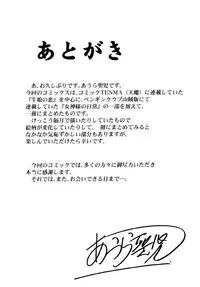 あとがき
あ、お久しぶりです。あうら聖児です。
今回のコミックスは、コミックTENMA(天魔)に連載していた
『牛娘の恋』を中心に、ペンギンクラブ山賊版にて
連載していた『女神様の日常』の一部を加えて、
一冊にまとめたものです。
けっこう毎月で描いたりしていたもので
絵柄が変化していたりして、一冊にまとめてみると
なかなか気恥ずかしい部分もありますが、
楽しんでいただけたら幸いです。
今回のコミックでは、多くの方々に御尽力いただき
本当に感謝します。
それでは、またお会いできる日まで…。
あうら聖児